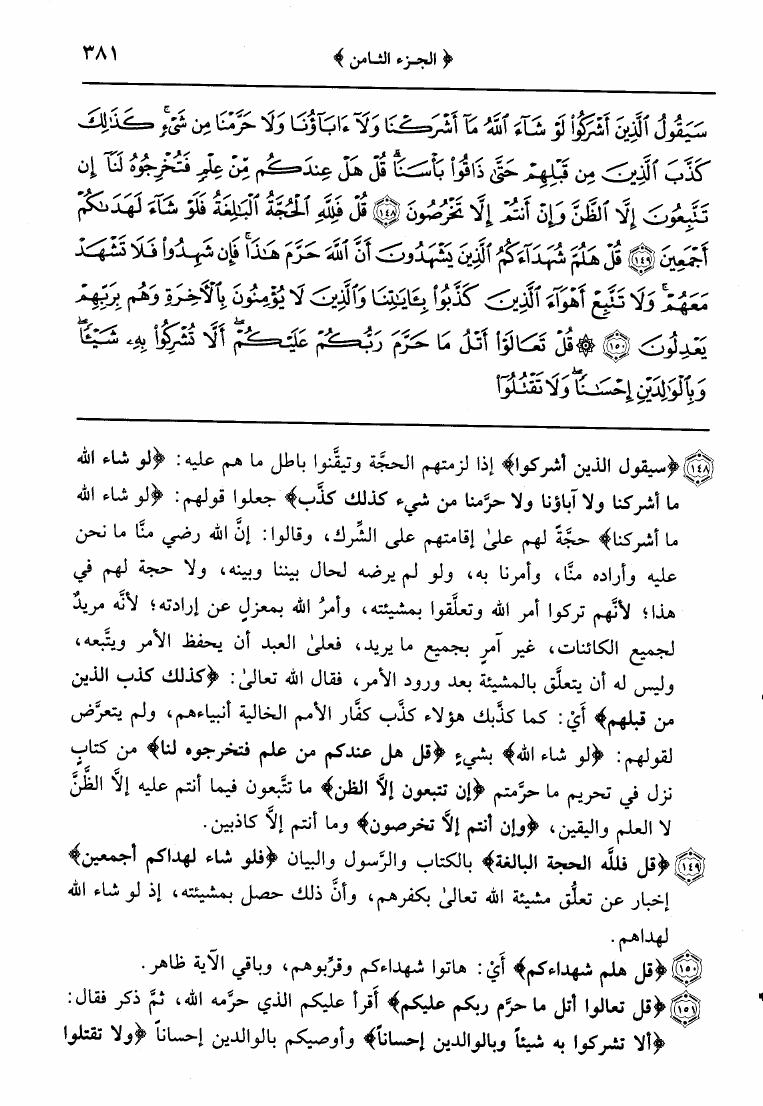 ﴿ الجزء الثامن ﴾ ٣٨١
سَيَقُولُ ٱلَّذِينَ أَشْرَكُوا۟ لَوْ شَآءَ ٱللَّهُ مَآ أَشْرَكْنَا وَلَآ ءَابَآؤُنَا وَلَا حَرَّمْنَا مِن شَىْءٍ ۚ كَذَٰلِكَ
كَذَّبَ ٱلَّذِينَ مِن قَبْلِهِمْ حَتَّىٰ ذَاقُوا۟ بَأْسَنَا ۗ قُلْ هَلْ عِندَكُم مِّنْ عِلْمٍ فَتُخْرِجُوهُ لَنَآ ۖ إِن
تَتَّبِعُونَ إِلَّا ٱلظَّنَّ وَإِنْ أَنتُمْ إِلَّا تَخْرُصُونَ ﴿١٤٨﴾ قُلْ فَلِلَّهِ ٱلْحُجَّةُ ٱلْبَٰلِغَةُ ۖ فَلَوْ شَآءَ لَهَدَىٰكُمْ
أَجْمَعِينَ ﴿١٤٩﴾ قُلْ هَلُمَّ شُهَدَآءَكُمُ ٱلَّذِينَ يَشْهَدُونَ أَنَّ ٱللَّهَ حَرَّمَ هَٰذَا ۖ فَإِن شَهِدُوا۟ فَلَا تَشْهَدْ
مَعَهُمْ ۚ وَلَا تَتَّبِعْ أَهْوَآءَ ٱلَّذِينَ كَذَّبُوا۟ بِـَٔايَٰتِنَا وَٱلَّذِينَ لَا يُؤْمِنُونَ بِٱلْءَاخِرَةِ وَهُم بِرَبِّهِمْ
يَعْدِلُونَ ﴿١٥٠﴾ ۞ قُلْ تَعَالَوْا۟ أَتْلُ مَا حَرَّمَ رَبُّكُمْ عَلَيْكُمْ ۖ أَلَّا تُشْرِكُوا۟ بِهِۦ شَيْـًٔا ۖ
وَبِٱلْوَٰلِدَيْنِ إِحْسَٰنًا ۖ وَلَا تَقْتُلُوٓا۟
﴿١٤٨﴾ ﴿سيقول الذين أشركوا﴾ إذا لزمتهم الحجَّة وتيقَّنوا باطل ما هم عليه: ﴿لو شاء الله
ما أشركنا ولا آباؤنا ولا حرَّمنا من شيء كذلك كذَّب﴾ جعلوا قولهم: ﴿لو شاء الله
ما أشركنا﴾ حجَّةً لهم علىٰ إقامتهم على الشِّرك، وقالوا: إنَّ الله رضي منَّا ما نحن
عليه وأراده منَّا، وأمرنا به، ولو لم يرضه لحال بيننا وبينه، ولا حجة لهم في
هذا؛ لأنَّهم تركوا أمر الله وتعلَّقوا بمشيئته، وأمرُ الله بمعزلٍ عن إرادته؛ لأنَّه مريدٌ
لجميع الكائنات، غير آمرٍ بجميع ما يريد، فعلىٰ العبد أن يحفظ الأمر ويتَّبعه،
وليس له أن يتعلَّق بالمشيئة بعد ورود الأمر، فقال الله تعالىٰ: ﴿كذلك كذب الذين
من قبلهم﴾ أَيْ: كما كذَّبك هؤلاء كذَّب كفَّار الأمم الخالية أنبياءهم، ولم يتعرَّض
لقولهم: ﴿لو شاء الله﴾ بشيءٍ ﴿قل هل عندكم من علم فتخرجوه لنا﴾ من كتابٍ
نزل في تحريم ما حرَّمتم ﴿إن تتبعون إلاَّ الظن﴾ ما تتَّبعون فيما أنتم عليه إلاَّ الظَّنَّ
لا العلم واليقين، ﴿وإن أنتم إلاَّ تخرصون﴾ وما أنتم إلاَّ كاذبين.
﴿١٤٩﴾ ﴿قل فللَّه الحجة البالغة﴾ بالكتاب والرَّسول والبيان ﴿فلو شاء لهداكم أجمعين﴾
إخبار عن تعلُّق مشيئة الله تعالىٰ بكفرهم، وأنَّ ذلك حصل بمشيئته، إذ لو شاء الله
لهداهم.
﴿١٥٠﴾ ﴿قل هلم شهداءكم﴾ أَيْ: هاتوا شهداءكم وقرِّبوهم، وباقي الآية ظاهر.
﴿١٥١﴾ ﴿قل تعالوا أتل ما حرَّم ربكم عليكم﴾ أقرأ عليكم الذي حرَّمه الله، ثمَّ ذكر فقال:
﴿ألا تشركوا به شيئاً وبالوالدين إحساناً﴾ وأوصيكم بالوالدين إحساناً ﴿ولا تقتلوا